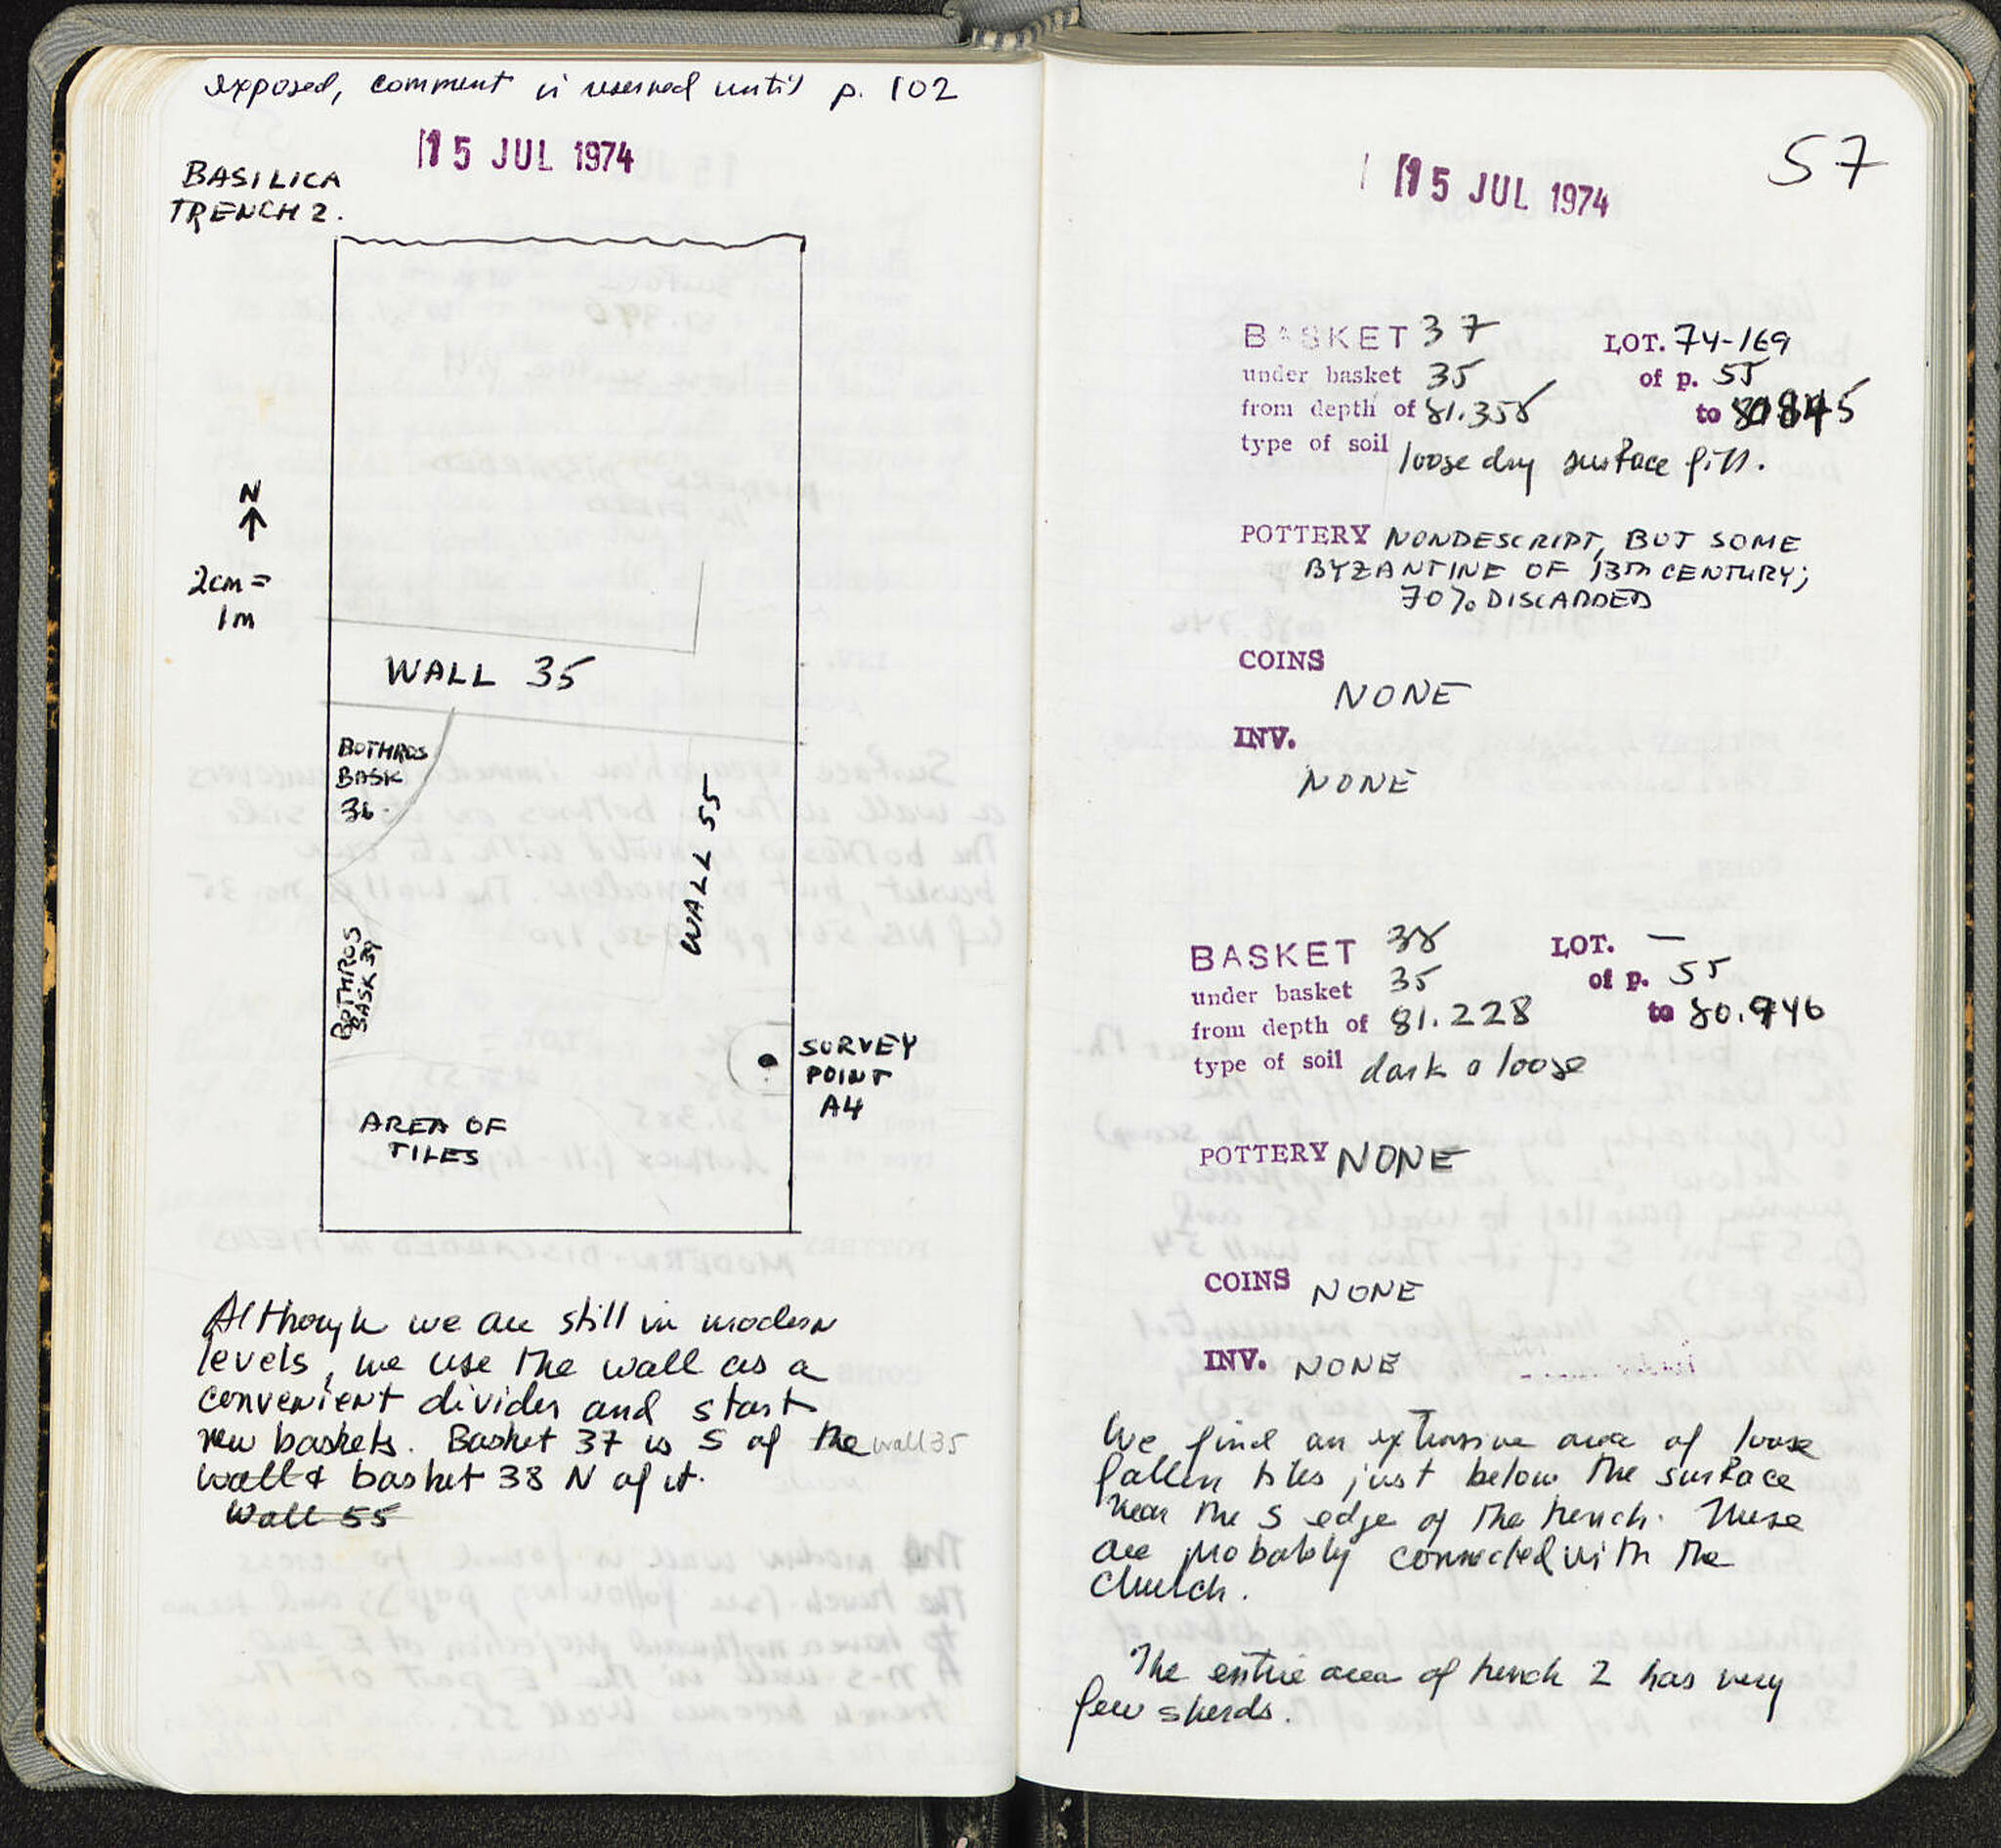 exposed, comment is reserved until p. 102
15 JUL 1974
BASILICA
TRENCH 2.
N
2cm =
1m
WALL 35
BOTHROS
BASK
36
WALL 55
BOTHROS
BASK 39
SURVEY
POINT
A4
AREA OF
TILES
Although we are still in modern
levels, we use the wall as a
convenient divider and start
new baskets. Basket 37 is S of the wall 35
wall & basket 38 N of it.
Wall 55
57
15 JUL 1974
BASKET 37 LOT. 74-169
under basket 35 of p. 55
from depth of 81.358 to
type of soil loose dry surface fill.
POTTERY NONDESCRIPT, BUT SOME
BYZANTINE OF 13TH CENTURY;
70% DISCARDED
COINS
NONE
INV.
NONE
BASKET 38 LOT. —
under basket 35 of p. 55
from depth of 81.228 to 80.946
type of soil dark & loose
POTTERY NONE
COINS NONE
INV. NONE
We find an extensive area of loose
fallen tiles just below the surface
near the S edge of the trench. These
are probably connected with the
church.
The entire area of trench 2 has very
few sherds.